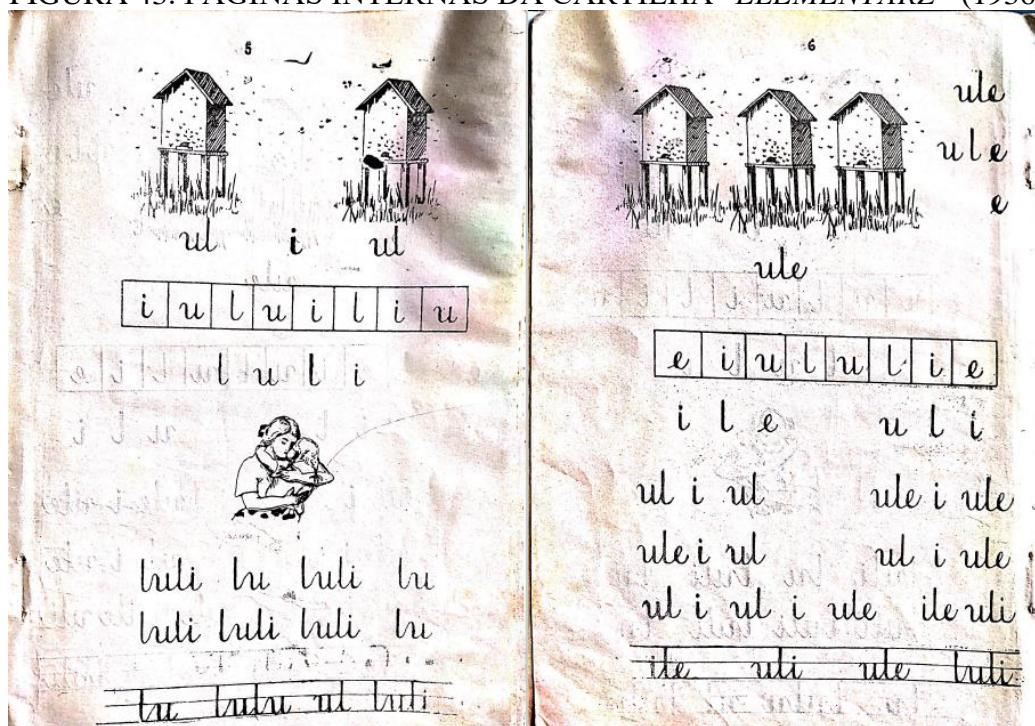 FIGURA 43: PÁGINAS INTERNAS DA CARTILHA "ELEMENTARZ" (1936
5
ul i ul
i u l u i l i u
l u l i
luli lu luli lu
luli luli luli lu
lu lulu ul luli
6
ule
u l e
e
ule
e i u l u l i e
i l e u l i
ul i ul ule i ule
ule i ul ul i ule
ul i ul i ule ile uli
ile uli ule luli